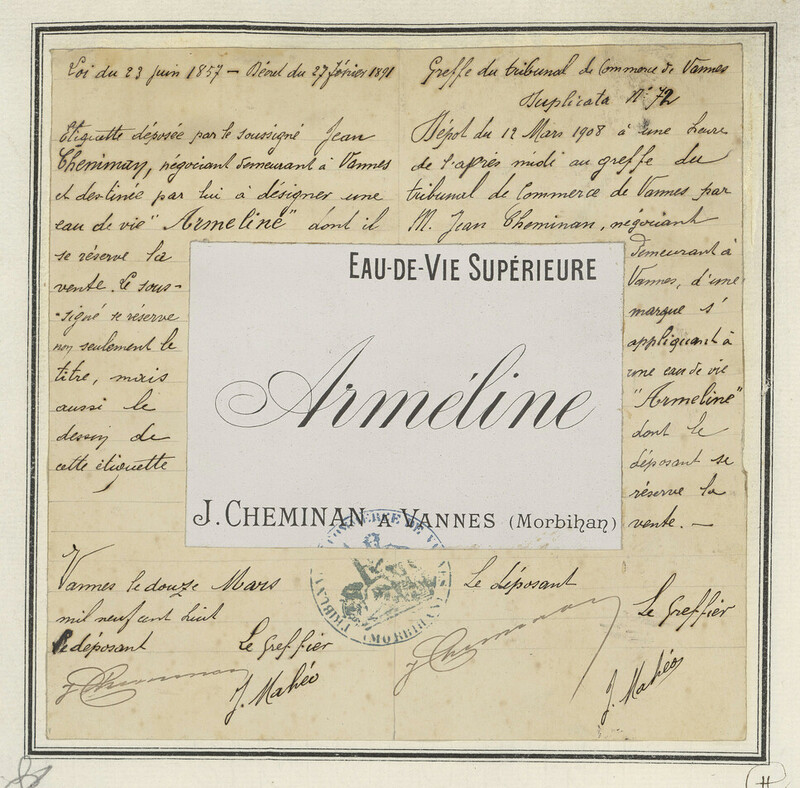 Loi du 23 juin 1857 — Décret du 27 février 1891
Etiquette déposée par le soussigné Jean
Cheminan, négociant demeurant à Vannes
et destinée par lui à désigner une
eau de vie "Armeline" dont il
se réserve la
vente. Le sous-
-signé se réserve
non seulement le
titre, mais
aussi le
dessin de
cette étiquette
Vannes le douze Mars
mil neuf cent huit
Le déposant Le Greffier
J Cheminan J. Mahéo
Greffe du tribunal de Commerce de Vannes
Duplicata N° 72
Dépôt du 12 Mars 1908 à une heure
de l'après midi au greffe du
tribunal de Commerce de Vannes par
M. Jean Cheminan, négociant
demeurant à
Vannes, d'une
marque s'
appliquant à
une eau de vie
"Armeline"
dont le
déposant se
réserve la
vente. —
Le déposant
Le Greffier
J Cheminan
J. Mahéo
EAU-DE-VIE SUPÉRIEURE
Arméline
J. CHEMINAN A VANNES (Morbihan)
TRIBUNAL DE COMMERCE DE VANNES
(MORBIHAN)